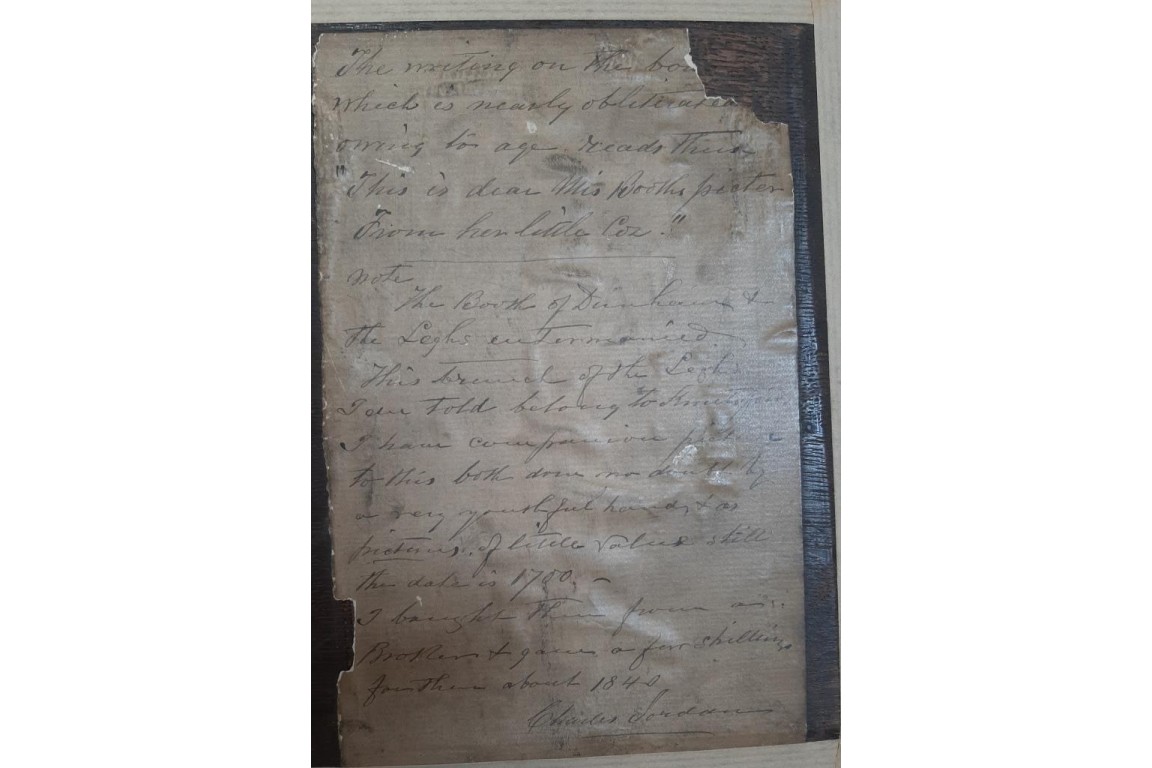 The writing on the
which is nearly obliterated
owing to age reads thus
"This is dear Mis Booths picter
From her little Coz."
note
The Booth of Dunham &
the Leghs intermarried
This branch of the Leghs
I am told belong to
I have companion
to this both done no doubt by
a very youthful hand, & as
pictures, of little value still
the date is 1750. –
I bought them from a
Broker & gave a few shillings
for them about 1840
Charles Jordan